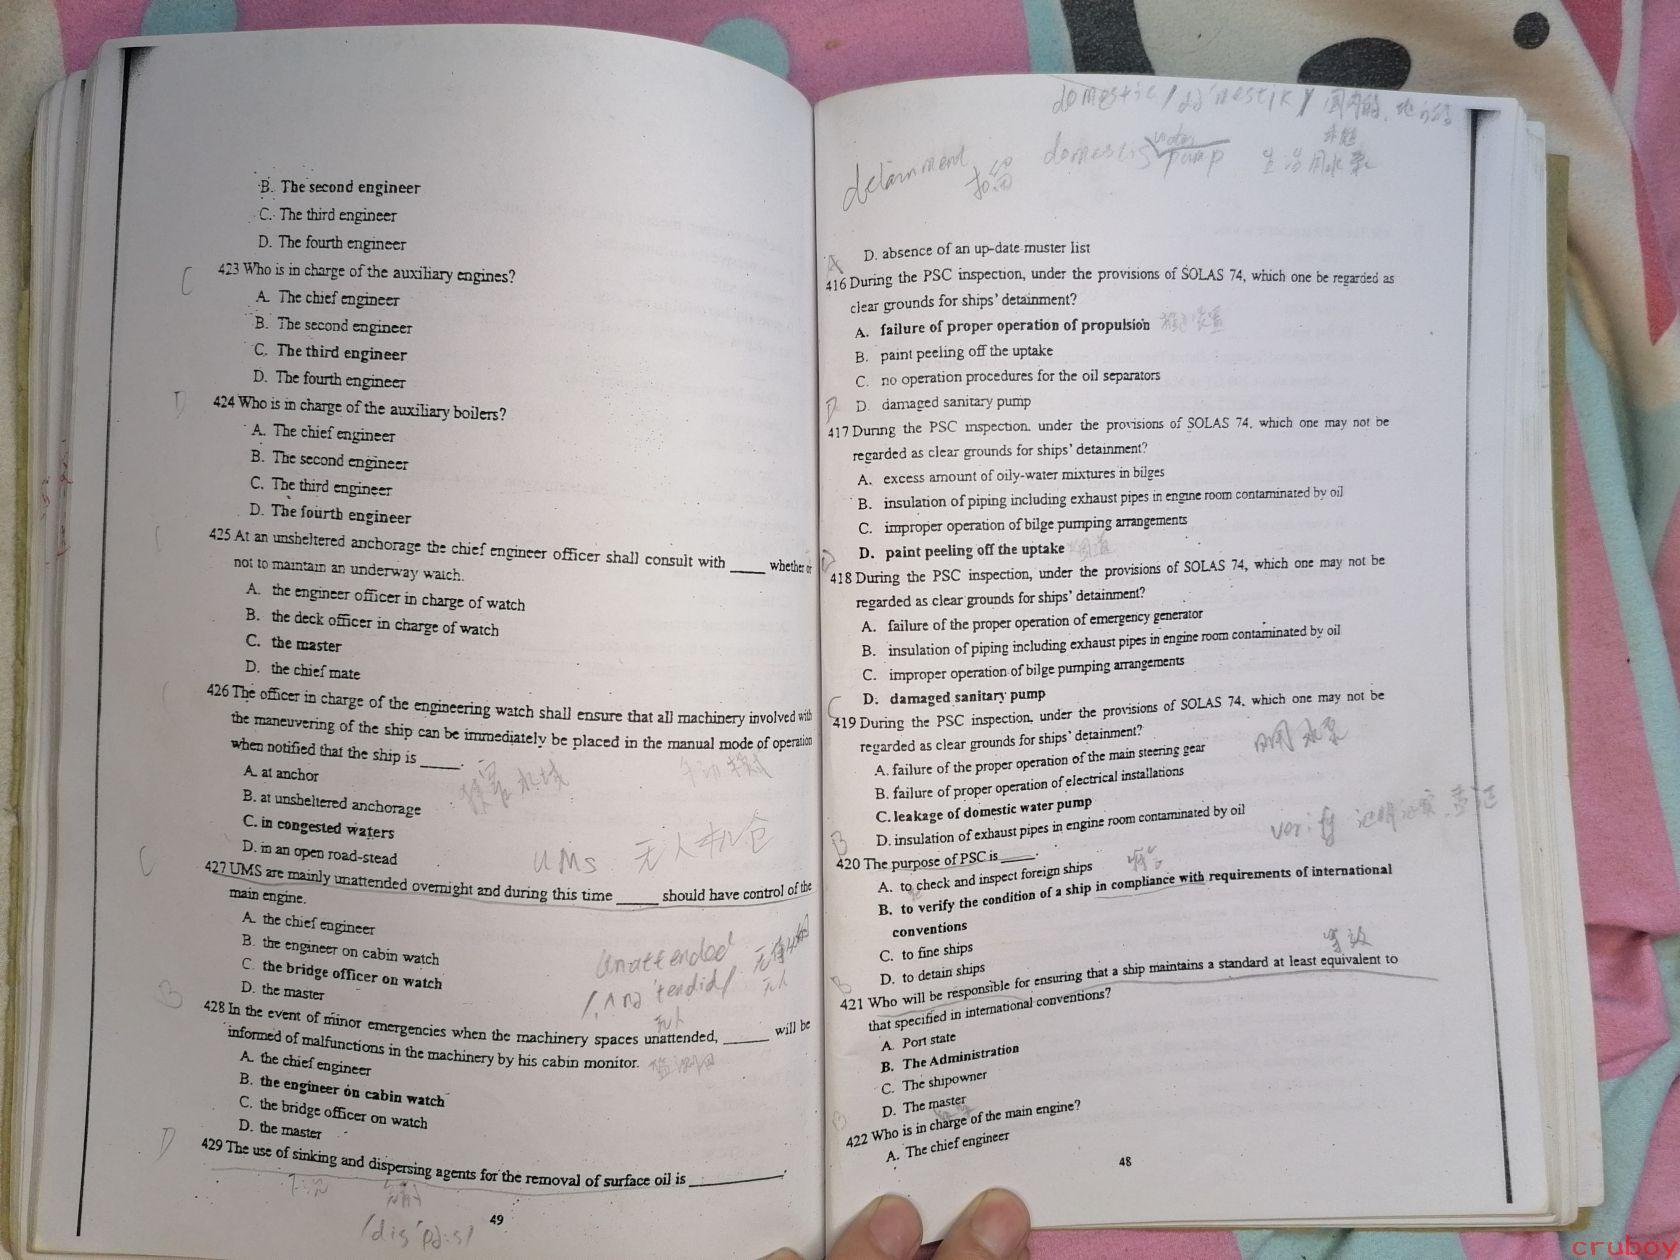 B. The second engineer
C. The third engineer
D. The fourth engineer
C
423 Who is in charge of the auxiliary engines?
A. The chief engineer
B. The second engineer
C. The third engineer
D. The fourth engineer
D
424 Who is in charge of the auxiliary boilers?
A. The chief engineer
B. The second engineer
C. The third engineer
D. The fourth engineer
425 At an unsheltered anchorage the chief engineer officer shall consult with _____ whether or
not to maintain an underway watch.
A. the engineer officer in charge of watch
B. the deck officer in charge of watch
C. the master
D. the chief mate
426 The officer in charge of the engineering watch shall ensure that all machinery involved with
the maneuvering of the ship can be immediately be placed in the manual mode of operation
when notified that the ship is _____.
A. at anchor
B. at unsheltered anchorage
C. in congested waters
D. in an open road-stead
UMS 无人机仓
C
427 UMS are mainly unattended overnight and during this time _____ should have control of the
main engine.
A. the chief engineer
B. the engineer on cabin watch
C. the bridge officer on watch
D. the master
unattended
无人
B
428 In the event of minor emergencies when the machinery spaces unattended, _____ will be
informed of malfunctions in the machinery by his cabin monitor.
A. the chief engineer
B. the engineer on cabin watch
C. the bridge officer on watch
D. the master
D
429 The use of sinking and dispersing agents for the removal of surface oil is _____.
49
domestic /də'mestik/ 国内的,
detainment 扣留
domestic water pump 生活用水泵
D. absence of an up-date muster list
A
416 During the PSC inspection, under the provisions of SOLAS 74, which one be regarded as
clear grounds for ships' detainment?
A. failure of proper operation of propulsion
B. paint peeling off the uptake
C. no operation procedures for the oil separators
D. damaged sanitary pump
D
417 During the PSC inspection, under the provisions of SOLAS 74, which one may not be
regarded as clear grounds for ships' detainment?
A. excess amount of oily-water mixtures in bilges
B. insulation of piping including exhaust pipes in engine room contaminated by oil
C. improper operation of bilge pumping arrangements
D. paint peeling off the uptake 烟道
D
418 During the PSC inspection, under the provisions of SOLAS 74, which one may not be
regarded as clear grounds for ships' detainment?
A. failure of the proper operation of emergency generator
B. insulation of piping including exhaust pipes in engine room contaminated by oil
C. improper operation of bilge pumping arrangements
D. damaged sanitary pump
C
419 During the PSC inspection, under the provisions of SOLAS 74, which one may not be
regarded as clear grounds for ships' detainment?
A. failure of the proper operation of the main steering gear
日用水泵
B. failure of proper operation of electrical installations
C. leakage of domestic water pump
D. insulation of exhaust pipes in engine room contaminated by oil
verify
B
420 The purpose of PSC is _____.
A. to check and inspect foreign ships
B. to verify the condition of a ship in compliance with requirements of international
conventions
C. to fine ships
D. to detain ships
等效
B
421 Who will be responsible for ensuring that a ship maintains a standard at least equivalent to
that specified in international conventions?
A. Port state
B. The Administration
C. The shipowner
D. The master
B
422 Who is in charge of the main engine?
A. The chief engineer
48
cruboy